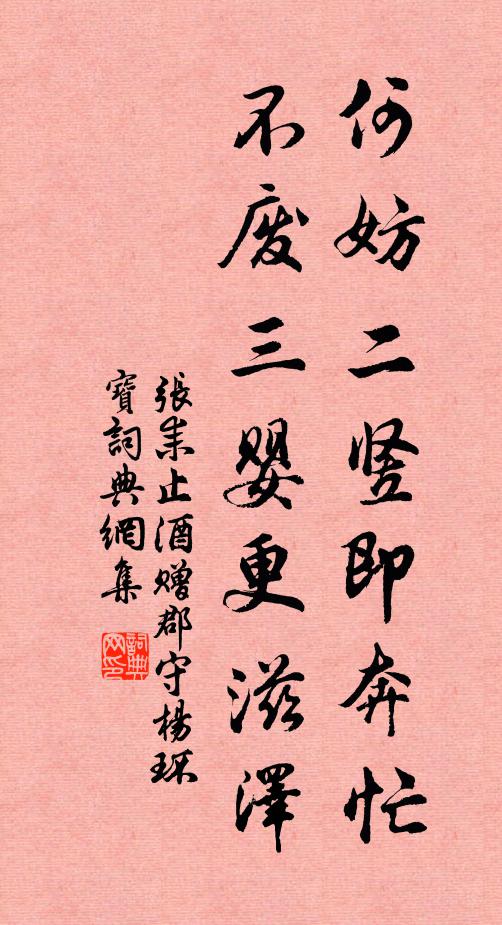 何妨二竖即奔忙
不废三婴更滋澤
張耒止酒贈郡守楊環
寶詞典網集
詞典网印